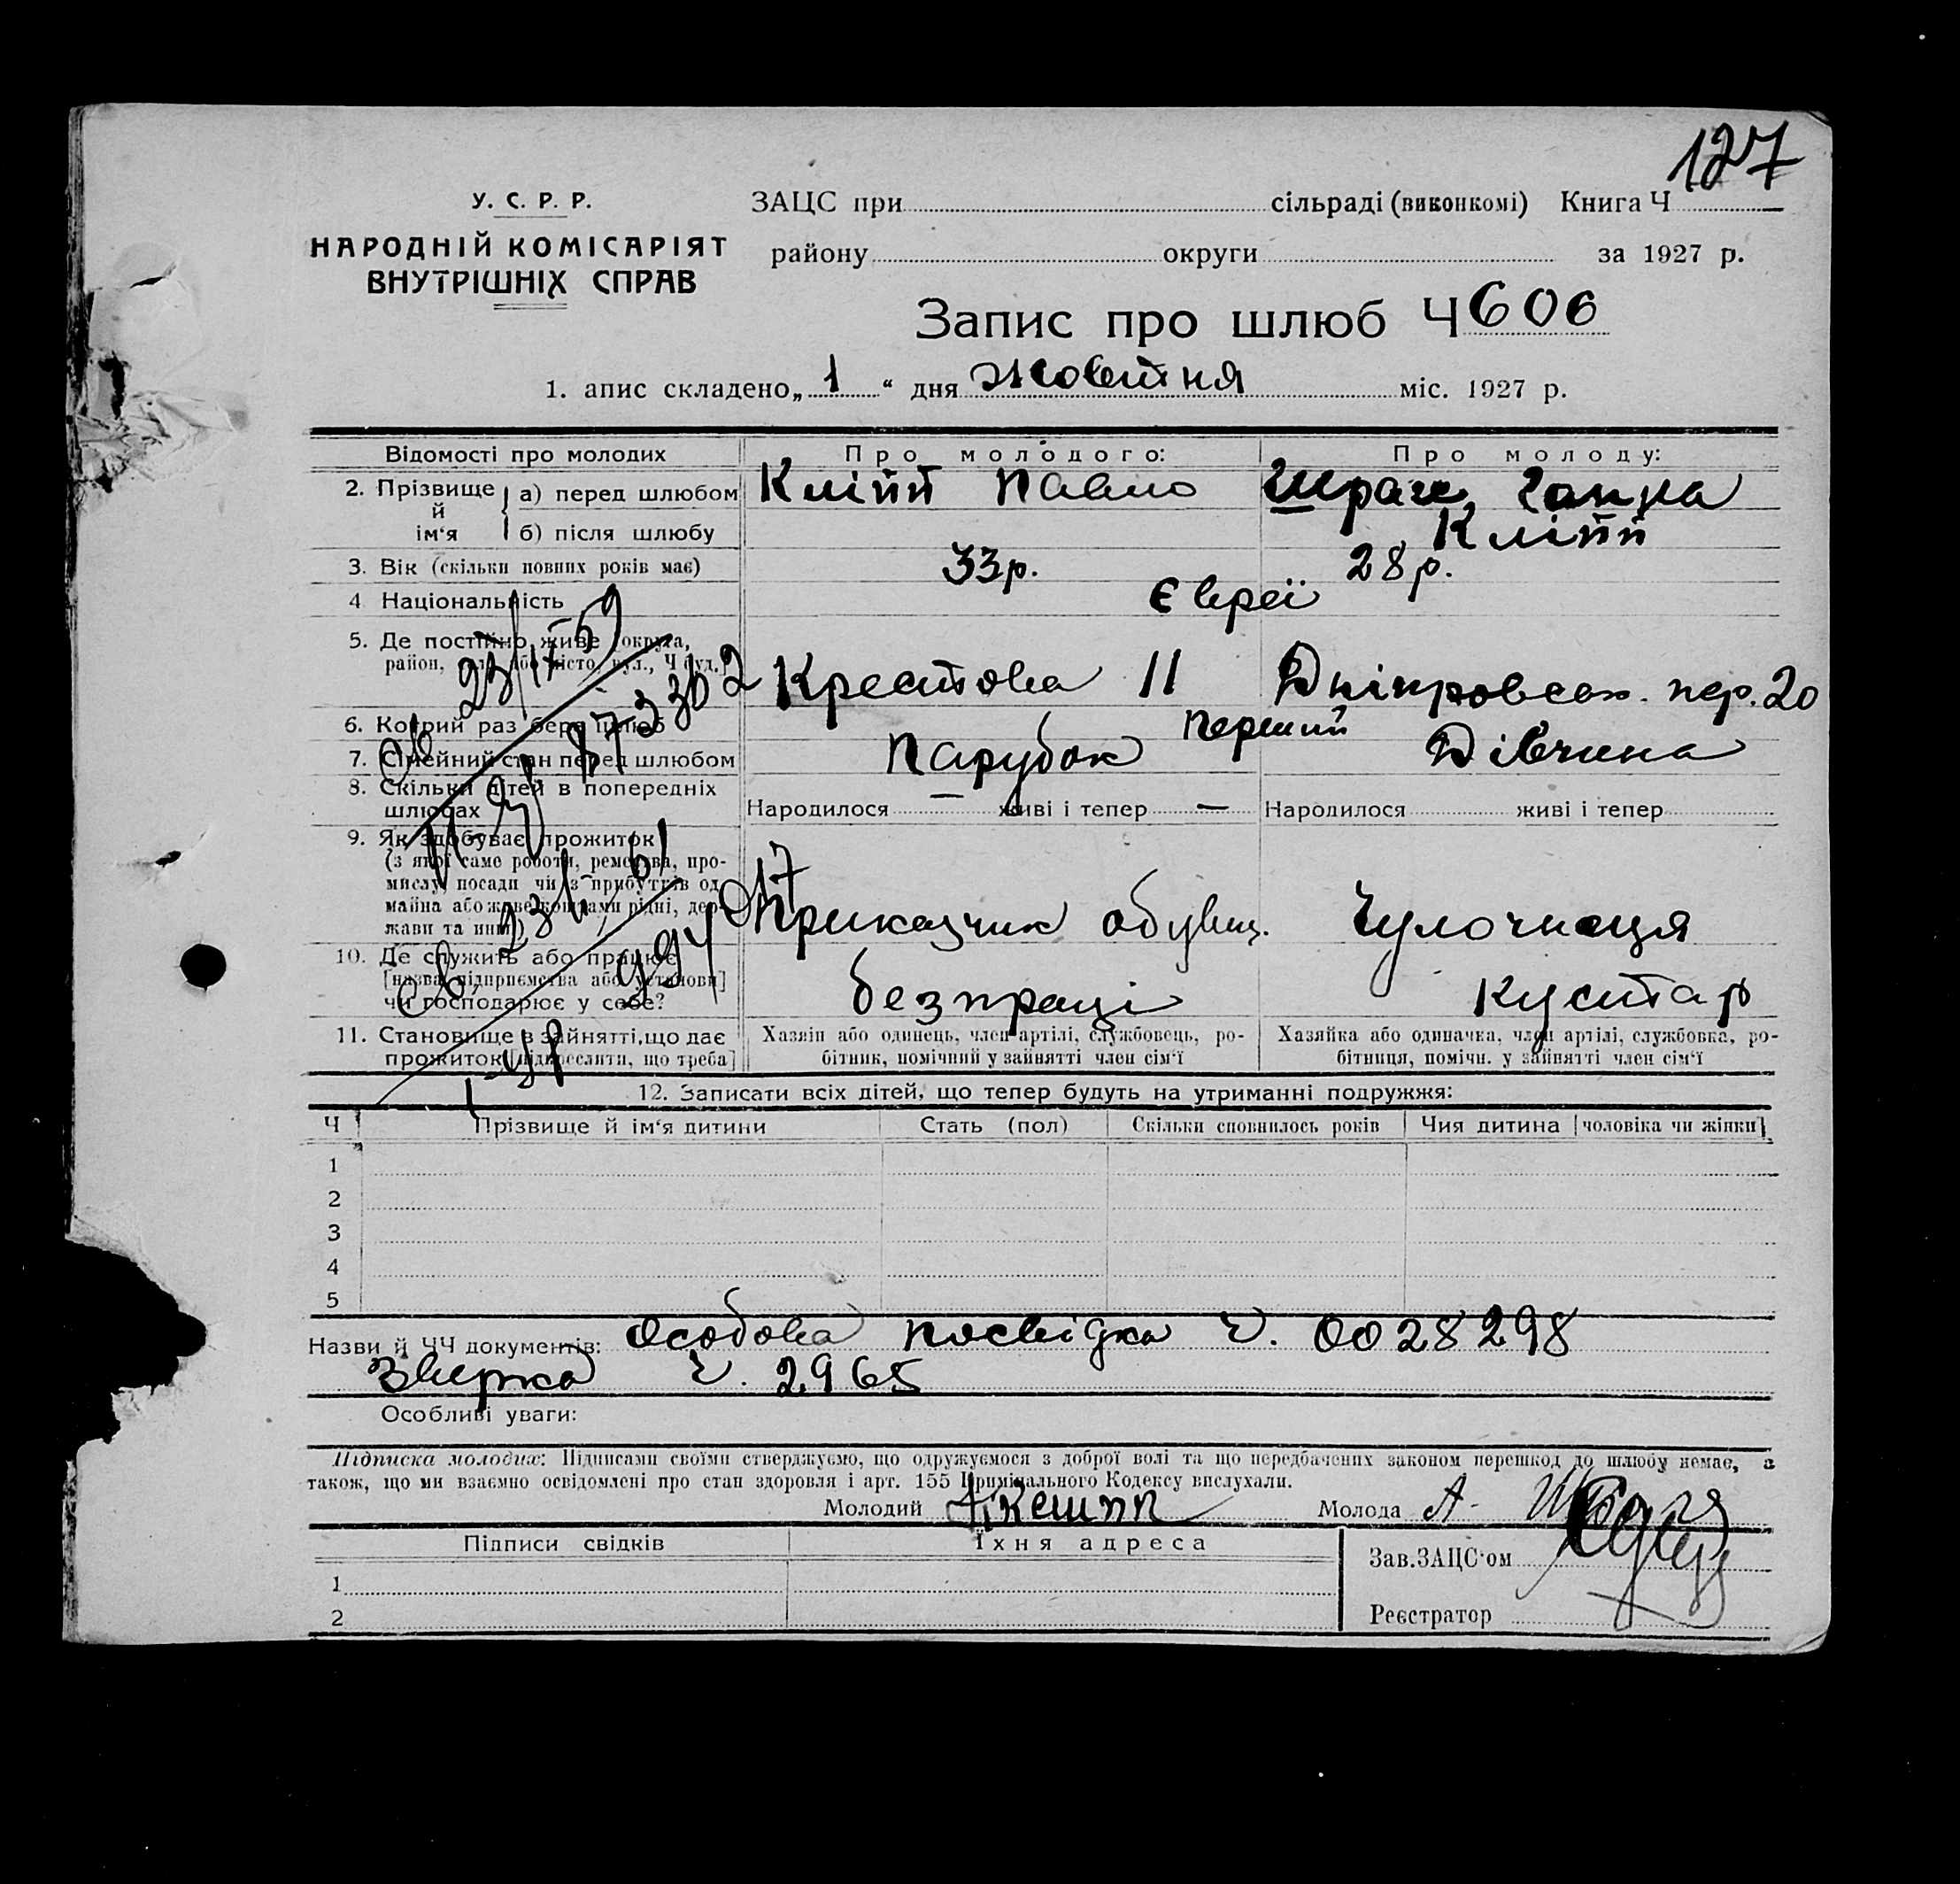 127
У. С. Р. Р.
НАРОДНІЙ КОМІСАРІЯТ
ВНУТРІШНІХ СПРАВ
ЗАЦС при сільраді (виконкомі) Книга Ч
району округи за 1927 р.
Запис про шлюб Ч 606
1. апис складено „ 1 “ дня Жовтня міс. 1927 р.
Відомості про молодих Про молодого: Про молоду:
2. Прізвище й ім‘я а) перед шлюбом Кліпп Павло Шраге Ганна
б) після шлюбу Кліпп
3. Вік (скільки повних років має) 33 р. 28 р.
4 Національність Євреї
5. Де постійно живе [округа,
район, село або місто, вул., Ч буд.] Крестова 11 Дніпровськ. пер. 20
6. Котрий раз бере шлюб Перший
7. Сімейний стан перед шлюбом Парубок Дівчина
8. Скільки дітей в попередніх
шлюбах Народилося — живі і тепер — Народилося живі і тепер
9. Як здобуває прожиток
(з якої саме роботи, ремества, про-
мислу, посади чи з прибутків од
майна або живе коштами рідні, дер-
жави та инш.) Приказчик обувщ. Чулочниця
10. Де служить або працює
[назва підприємства або установи]
чи господарює у себе? безпраці кустар
11. Становище в зайнятті, що дає
прожиток [підкреслити, що треба]
Хазяїн або одинець, член артілі, службовець, ро-
бітник, помічний у зайнятті член сім‘ї
Хазяйка або одиначка, член артілі, службовка, ро-
бітниця, помічн. у зайнятті член сім‘ї
12. Записати всіх дітей, що тепер будуть на утриманні подружжя:
Ч Прізвище й ім‘я дитини Стать (пол) Скільки сповнилось років Чия дитина [чоловіка чи жінки]
1
2
3
4
5
Назви й ЧЧ документів: Особова посвідка ч. 0028298
Звирка ч. 2965
Особливі уваги:
Підписка молодих: Підписами своїми стверджуємо, що одружуємося з доброї волі та що передбачених законом перешкод до шлюбу немає, а
також, що ми взаємно освідомлені про стан здоровля і арт. 155 Кримінального Кодексу вислухали.
Молодий Молода А.
Підписи свідків Їхня адреса
1
2
Зав. ЗАЦС‘ом
Реєстратор